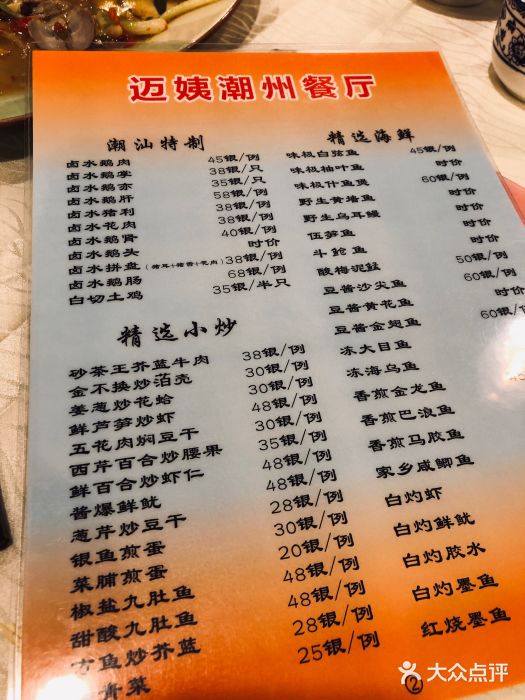 迈姨潮州餐厅
潮汕特制
卤水鹅肉 45银/例
卤水鹅掌 38银/只
卤水鹅亦 35银/只
卤水鹅肝 58银/例
卤水猪利 38银/例
卤水花肉 38银/例
卤水鹅肾 40银/例
卤水鹅头 时价
卤水拼盘 (猪耳+猪香+花肉) 38银/例
卤水鹅肠 68银/例
白切土鸡 35银/半只
精选小炒
砂茶王芥蓝牛肉 38银/例
金不换炒泊壳 30银/例
姜葱炒花蛤 30银/例
鲜芦笋炒虾 48银/例
五花肉焖豆干 30银/例
西芹百合炒腰果 35银/例
鲜百合炒虾仁 48银/例
酱爆鲜鱿 48银/例
葱芹炒豆干 28银/例
银鱼煎蛋 30银/例
菜脯煎蛋 20银/例
椒盐九肚鱼 48银/例
甜酸九肚鱼 48银/例
方鱼炒芥蓝 28银/例
青菜 25银/例
精选海鲜
味极白弦鱼 45银/例
味极柚叶鱼 时价
味极什鱼煲 60银/例
野生黄墙鱼 时价
野生乌耳鳗 时价
伍笋鱼 时价
斗鲳鱼 时价
酸梅泥鯭 50银/例
豆酱沙尖鱼 60银/例
豆酱黄花鱼 时价
豆酱金兜鱼 60银/
冻大目鱼
冻海乌鱼
香煎金龙鱼
香煎巴浪鱼
香煎马胶鱼
家乡咸鲫鱼
白灼虾
白灼鲜鱿
白灼胶水
白灼墨鱼
红烧墨鱼
②
大众点评